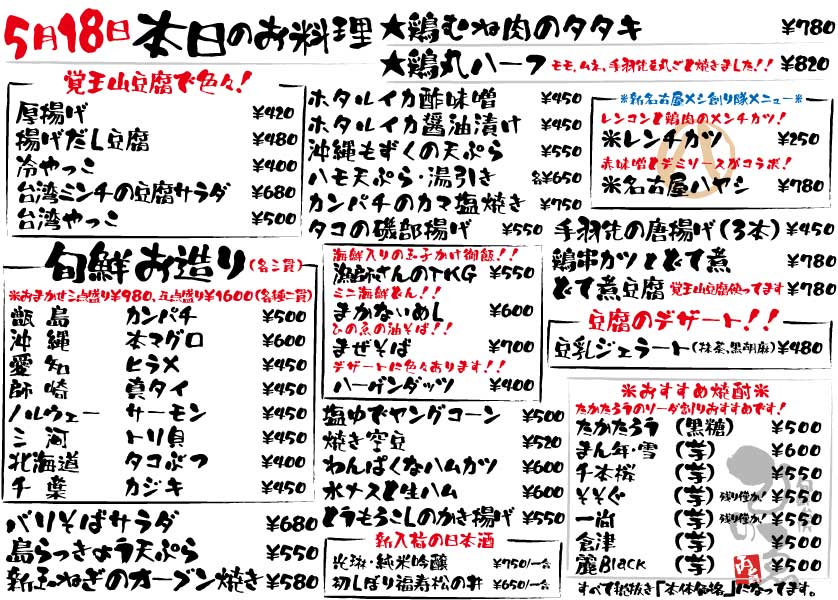 5月18日 本日のお料理
★鶏むね肉のタタキ ¥780
★鶏丸ハーフ モモ、ムネ、手羽先を丸ごと焼きました!! ¥820
覚王山豆腐で色々!
厚揚げ ¥420
揚げだし豆腐 ¥480
冷やっこ ¥400
台湾ミンチの豆腐サラダ ¥680
台湾やっこ ¥500
旬鮮お造り(各二貫)
※おまかせ三点盛り¥980、五点盛り¥1600(各種二貫)
甑島 カンパチ ¥500
沖縄 本マグロ ¥600
愛知 ヒラメ ¥450
師崎 真タイ ¥450
ノルウェー サーモン ¥450
三河 トリ貝 ¥450
北海道 タコぶつ ¥400
千葉 カジキ ¥450
バリそばサラダ ¥680
島らっきょう天ぷら ¥550
新玉ねぎのオーブン焼き ¥580
ホタルイカ酢味噌 ¥450
ホタルイカ醤油漬け ¥450
沖縄もずくの天ぷら ¥550
ハモ天ぷら・湯引き 各¥650
カンパチのカマ塩焼き ¥750
タコの磯部揚げ ¥550
海鮮入りの玉子かけ御飯!!
漁師さんのTKG ¥550
ミニ海鮮どん!!
まかないめし ¥600
ひの魚の油そば!!
まぜそば ¥700
デザートに色々あります!!
ハーゲンダッツ ¥400
塩ゆでヤングコーン ¥500
焼き空豆 ¥520
わんぱくなハムカツ ¥600
水ナスと生ハム ¥600
とうもろこしのかき揚げ ¥550
新入荷の日本酒
光琳・純米吟醸 ¥750/一合
初しぼり福寿松の井 ¥650/一合
※新名古屋メシ創り隊メニュー※
レンコンと鶏肉のメンチカツ!
※レンチカツ ¥250
赤味噌とデミソースがコラボ!
※名古屋ハヤシ ¥780
手羽先の唐揚げ(3本) ¥450
鶏串カツとどて煮 ¥780
どて煮豆腐 覚王山豆腐使ってます ¥780
豆腐のデザート!!
豆乳ジェラート(抹茶、黒胡麻) ¥480
※おすすめ焼酎※
たかたろうのソーダ割りおすすめです!
たかたろう (黒糖) ¥500
まん年・雪 (芋) ¥600
千本桜 (芋) ¥550
そそぐ (芋) 残り僅か! ¥550
一尚 (芋) 残り僅か! ¥550
倉津 (芋) ¥500
麗Black (芋) ¥500
すべて税抜き「本体価格」になってます。